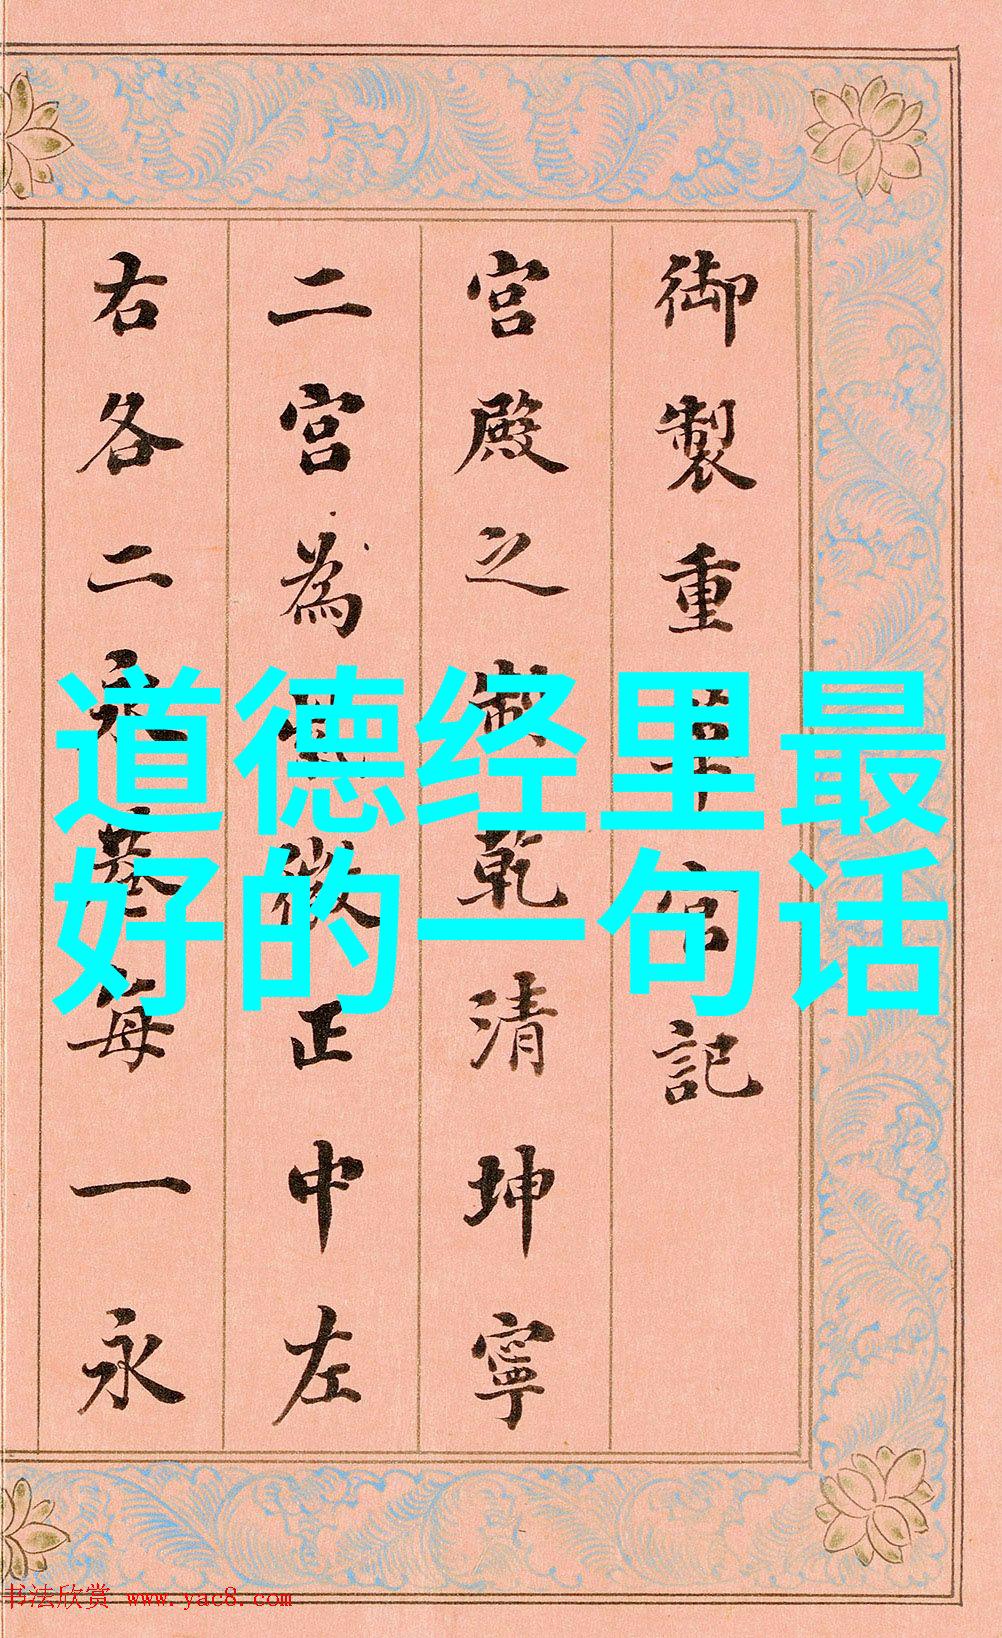 御製重華宮記
宮殿之制乾清坤寧
二宮為紫微正中左
右各二永巷每一永
道德经里最
好的一句话
书法欣赏 www.yac8.com